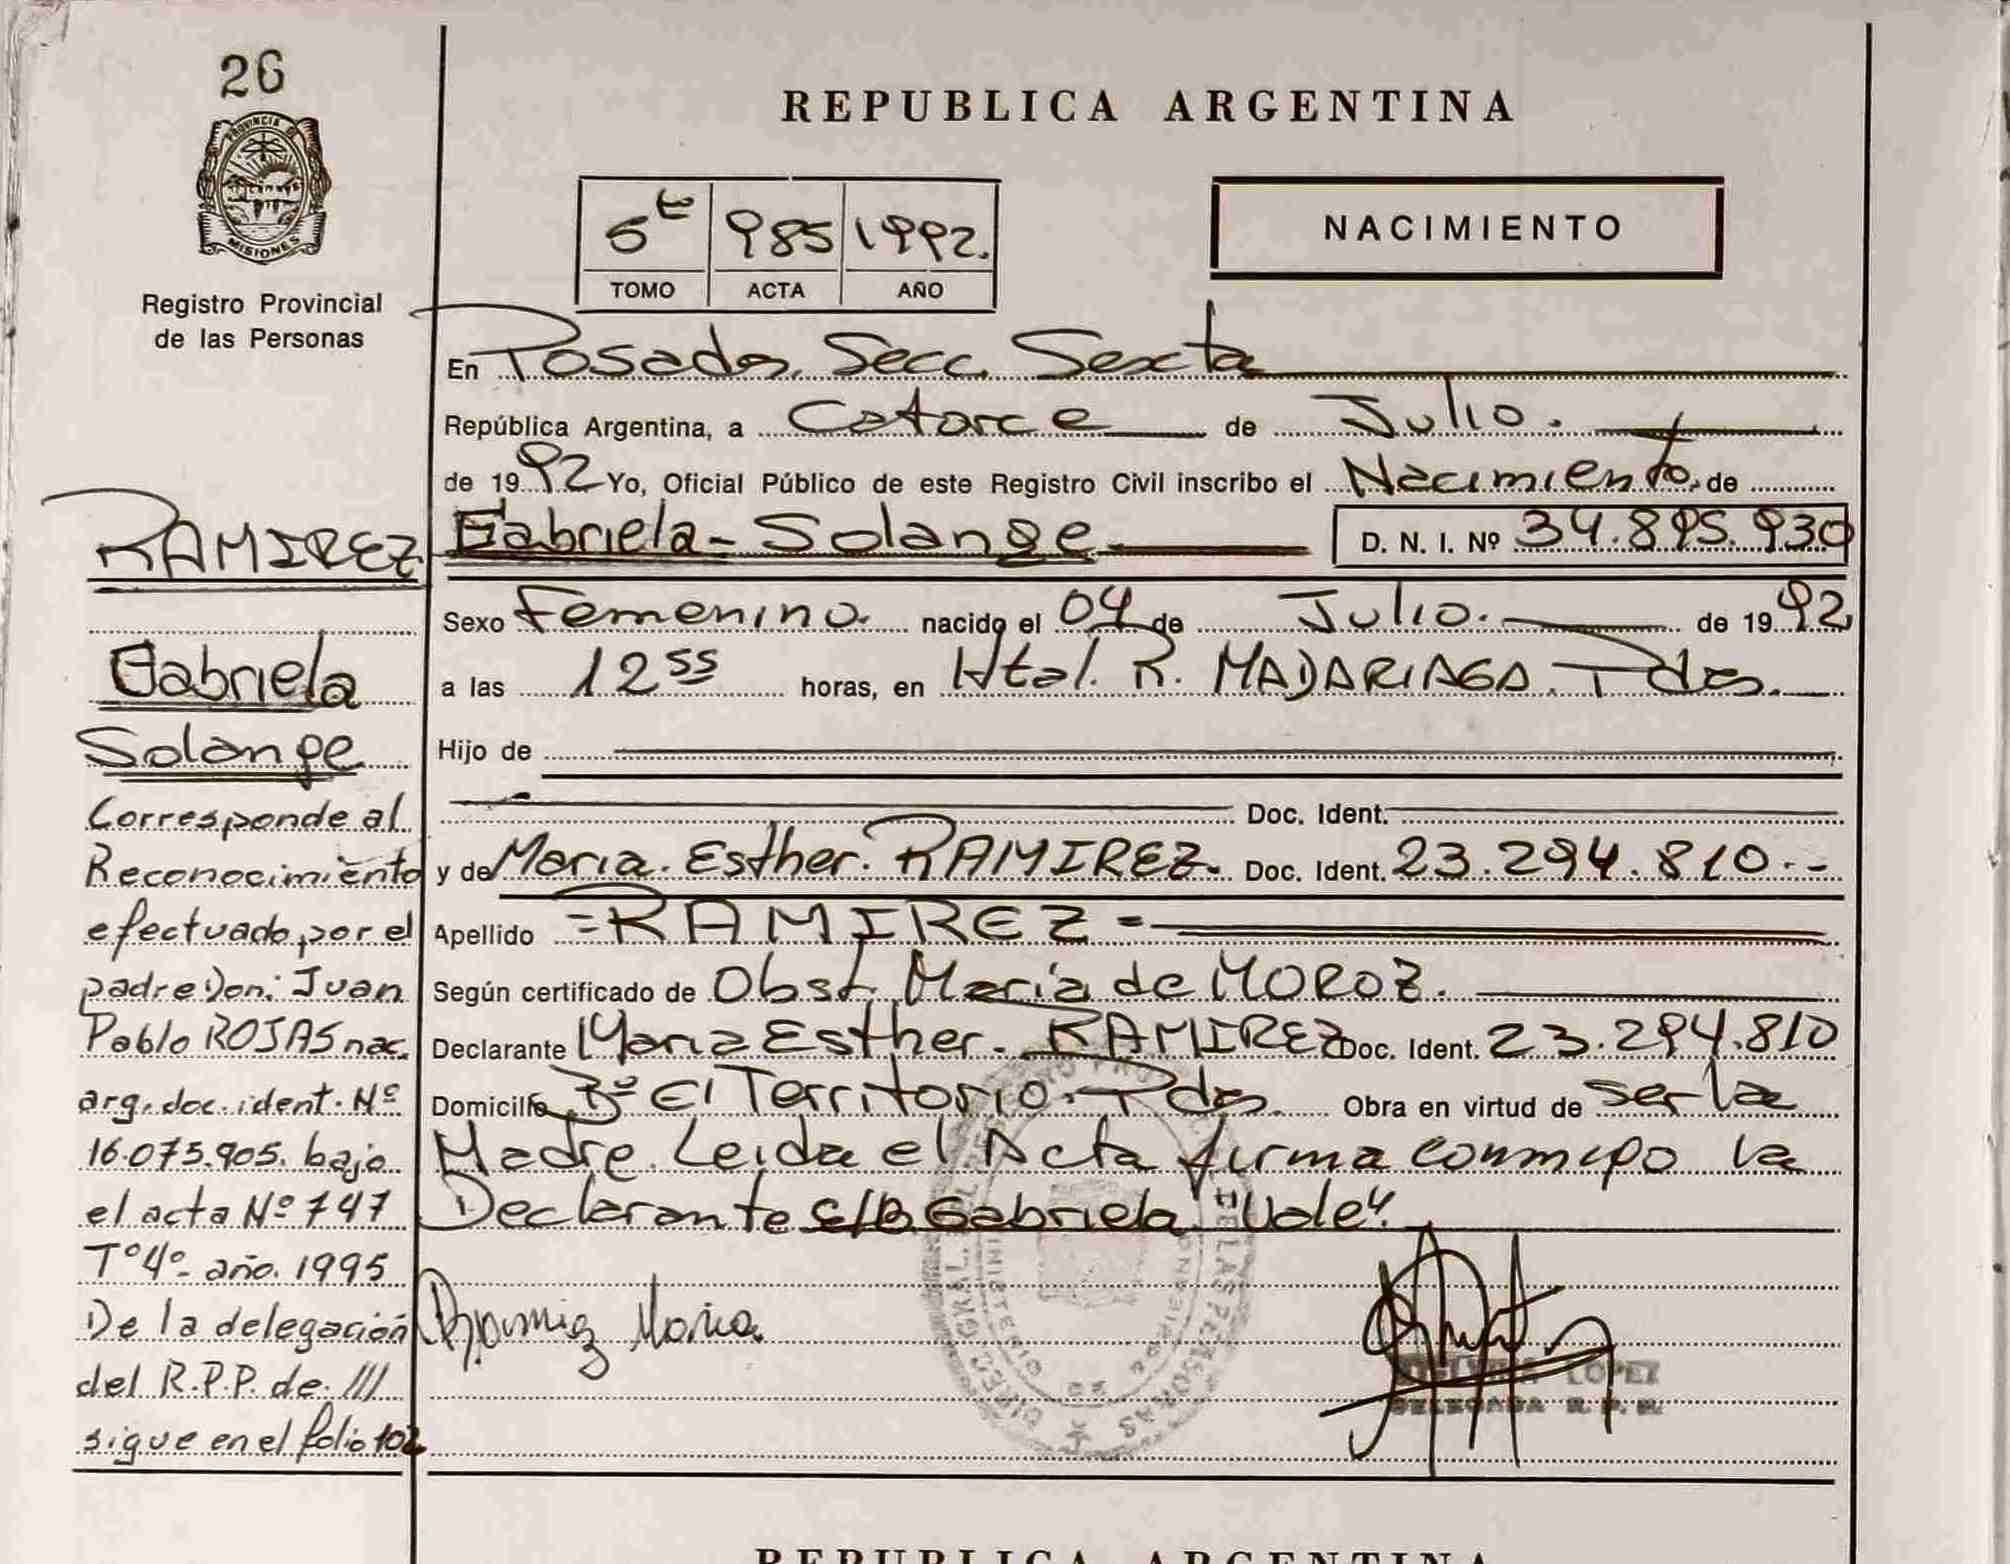 26
PROVINCIA DE
MISIONES
Registro Provincial
de las Personas
REPUBLICA ARGENTINA
5t 985 1992.
TOMO ACTA AÑO
NACIMIENTO
En Posadas. Secc. Sexta
República Argentina, a Catorce de Julio.
de 1992 Yo, Oficial Público de este Registro Civil inscribo el Nacimiento. de
Gabriela - Solange D. N. I. Nº 34.895.930
Sexo Femenino. nacido el 04 de Julio. de 1992
a las 12 55 horas, en Htal. R. MADARIAGA. Pdas.
Hijo de
Doc. Ident.
y de Maria. Esther. RAMIREZ. Doc. Ident. 23.294.810.--
Apellido =RAMIREZ=
Según certificado de Obst. María de MOROZ.
Declarante Maria Esther. RAMIREZ Doc. Ident. 23.294.810
Domicilio Bº El Territorio. Pdas. Obra en virtud de ser la
Madre. Leida el Acta firma conmigo la
Declarante S/B Gabriela "Vale"
Ramirez Maria
LOPEZ
DELEGADA R. P. P.
RAMIREZ
Gabriela
Solange
Corresponde al
Reconocimiento
efectuado por el
padre Don: Juan
Pablo ROJAS nac.
arg. doc. ident. Nº
16.075.905. bajo
el acta Nº 747
Tº 4º- año. 1995
De la delegación
del R.P.P. de. ///
sigue en el folio 102
REPUBLICA ARGENTINA